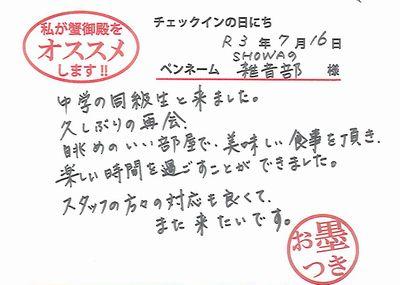 私が蟹御殿を
オススメ
します!!
チェックインの日にち
R3年7月16日
SHOWAの
ペンネーム 雑音部 様
中学の同級生と来ました。
久しぶりの再会、
眺めのいい部屋で、美味しい食事を頂き、
楽しい時間を過ごすことができました。
スタッフの方々の対応も良くて、
また来たいです。
お墨
つき